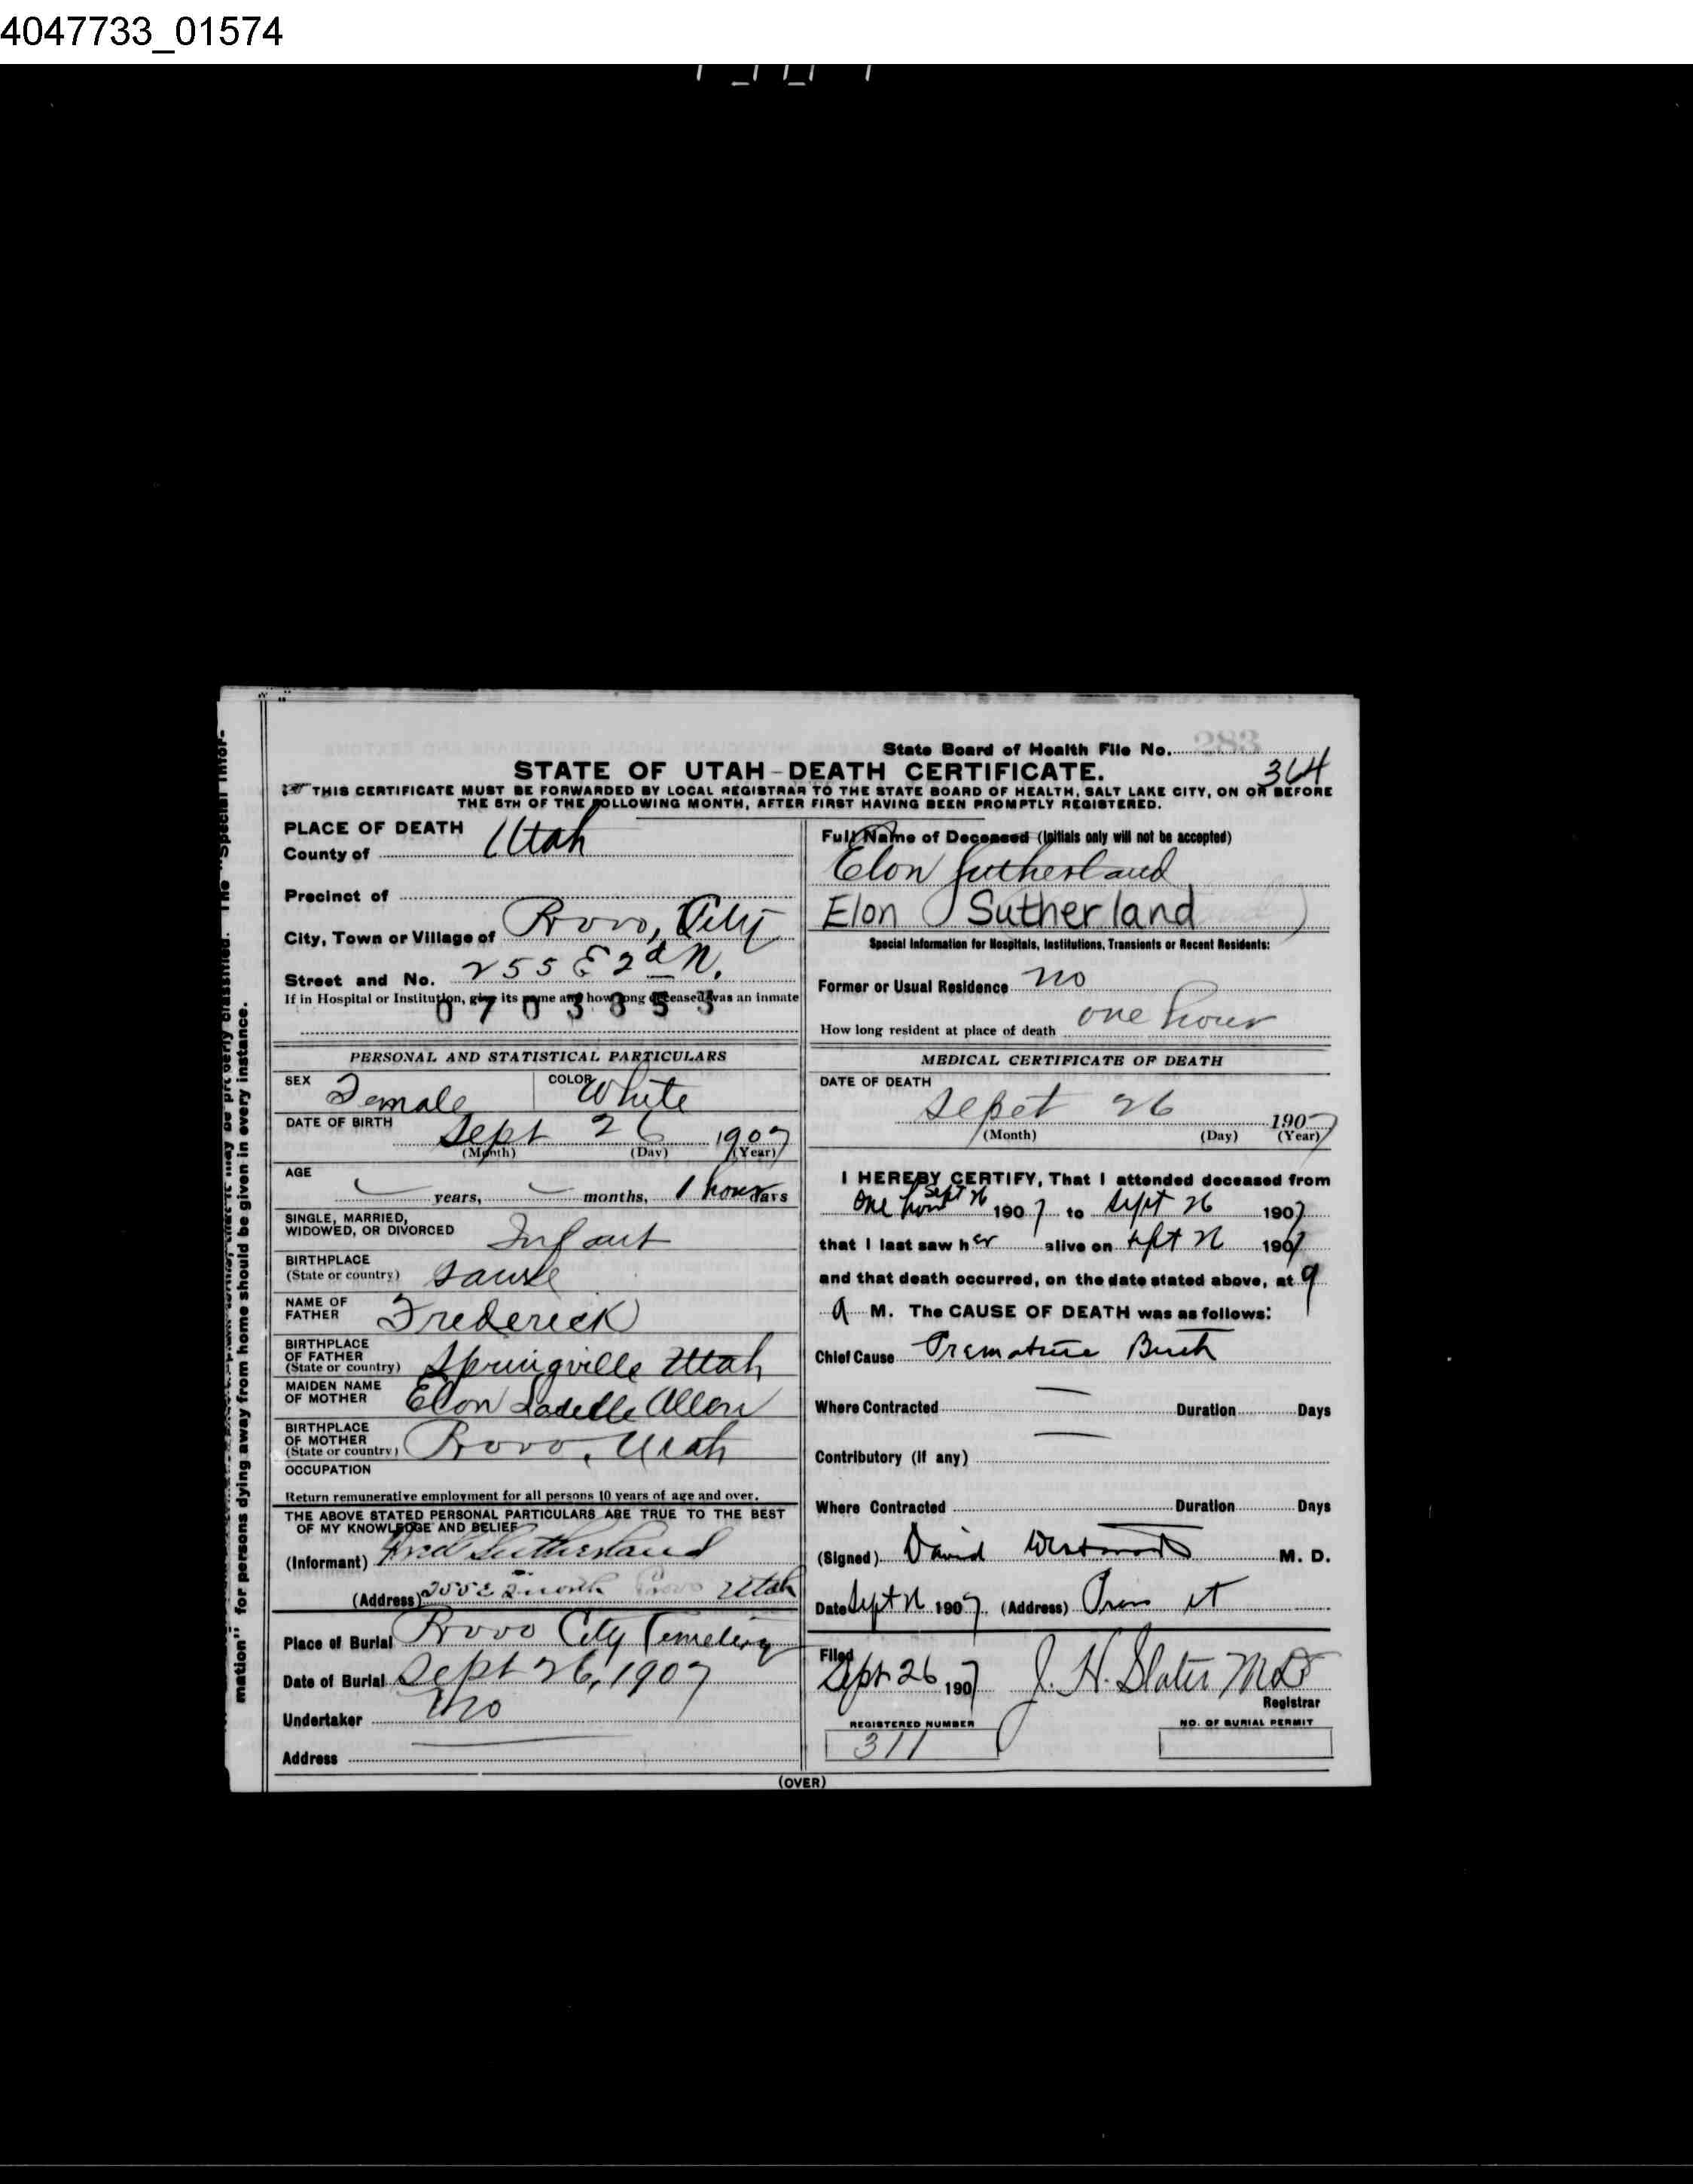 4047733_01574
State Board of Health File No. 283
364
STATE OF UTAH-DEATH CERTIFICATE.
THIS CERTIFICATE MUST BE FORWARDED BY LOCAL REGISTRAR TO THE STATE BOARD OF HEALTH, SALT LAKE CITY, ON OR BEFORE
THE 5TH OF THE FOLLOWING MONTH, AFTER FIRST HAVING BEEN PROMPTLY REGISTERED.
PLACE OF DEATH
County of Utah
Precinct of
City, Town or Village of Provo, City
Street and No. 255 E 2d N.
If in Hospital or Institution, give its name and how long deceased was an inmate
0703853
PERSONAL AND STATISTICAL PARTICULARS
SEX Female COLOR White
DATE OF BIRTH Sept 26 1907
(Month) (Day) (Year)
AGE years, months, 1 hour days
SINGLE, MARRIED,
WIDOWED, OR DIVORCED Infant
BIRTHPLACE
(State or country)
NAME OF
FATHER Frederick
BIRTHPLACE
OF FATHER
(State or country) Springville Utah
MAIDEN NAME
OF MOTHER Elon Allen
BIRTHPLACE
OF MOTHER
(State or country) Provo, Utah
OCCUPATION
Return remunerative employment for all persons 10 years of age and over.
THE ABOVE STATED PERSONAL PARTICULARS ARE TRUE TO THE BEST
OF MY KNOWLEDGE AND BELIEF
(Informant) Fred Sutherland
(Address) 255 E 2 north Provo Utah
Place of Burial Provo City Cemetery
Date of Burial Sept 26, 1907
Undertaker no
Address
Full Name of Deceased (Initials only will not be accepted)
Elon Sutherland
Elon Sutherland
Special Information for Hospitals, Institutions, Transients or Recent Residents:
Former or Usual Residence no
How long resident at place of death one hour
MEDICAL CERTIFICATE OF DEATH
DATE OF DEATH
Sepet 26 1907
(Month) (Day) (Year)
I HEREBY CERTIFY, That I attended deceased from
one hour Sept 26 1907 to Sept 26 1907
that I last saw her alive on Sept 26 1907
and that death occurred, on the date stated above, at 9
a M. The CAUSE OF DEATH was as follows:
Chief Cause Premature Birth
Where Contracted Duration Days
Contributory (if any)
Where Contracted Duration Days
(Signed) David Westwood M. D.
Date Sept 26 1907 (Address) Provo Ut
Filed
Sept 26 1907 J. H. Slater MD
Registrar
REGISTERED NUMBER
311
NO. OF BURIAL PERMIT
(OVER)
mation" for persons dying away from home should be given in every instance.